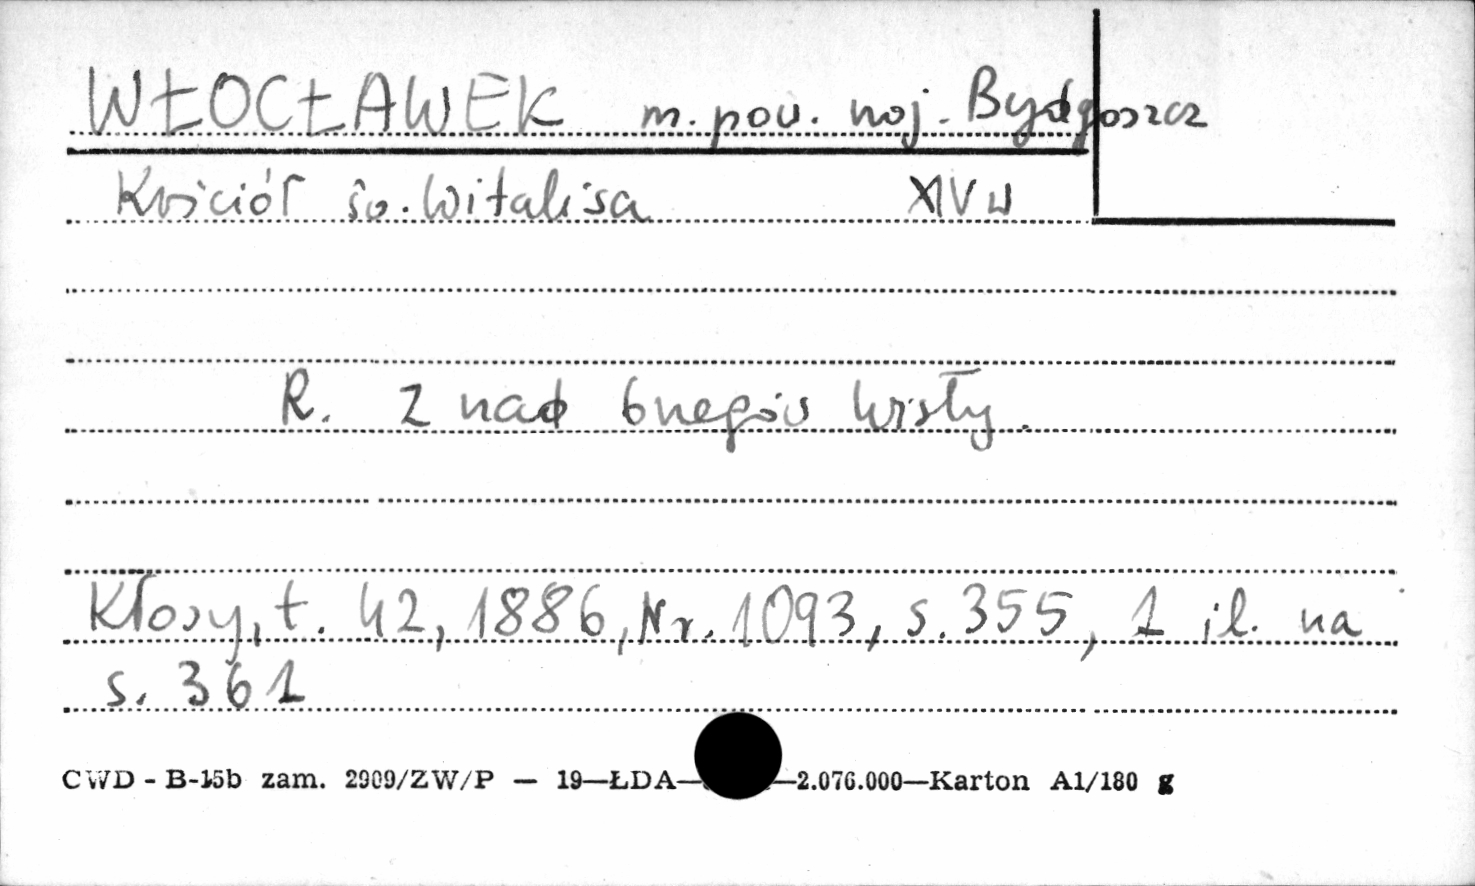 WŁOCŁAWEK m. pow. woj. Bydgoszcz
Kościół św. Witalisa XIV w
R. Z nad brzegów Wisły.
Kłosy, t. 42, 1886, Nr. 1093, s. 355, 1 il. na
s. 361
CWD - B-15b zam. 2909/ZW/P — 19—ŁDA— —2.076.000—Karton A1/180 g